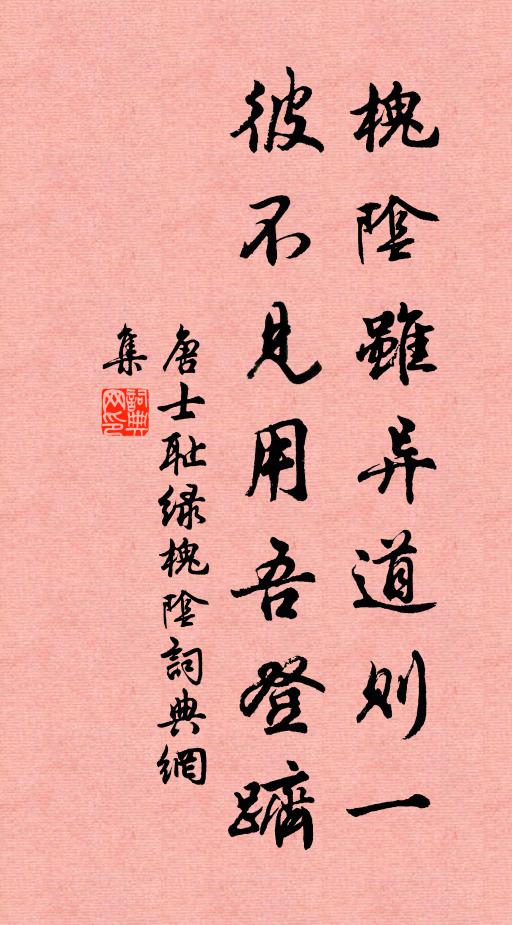 槐陰雖异道則一
彼不見用吾登躋
唐士耻绿槐陰詞典網
集
詞典
网印